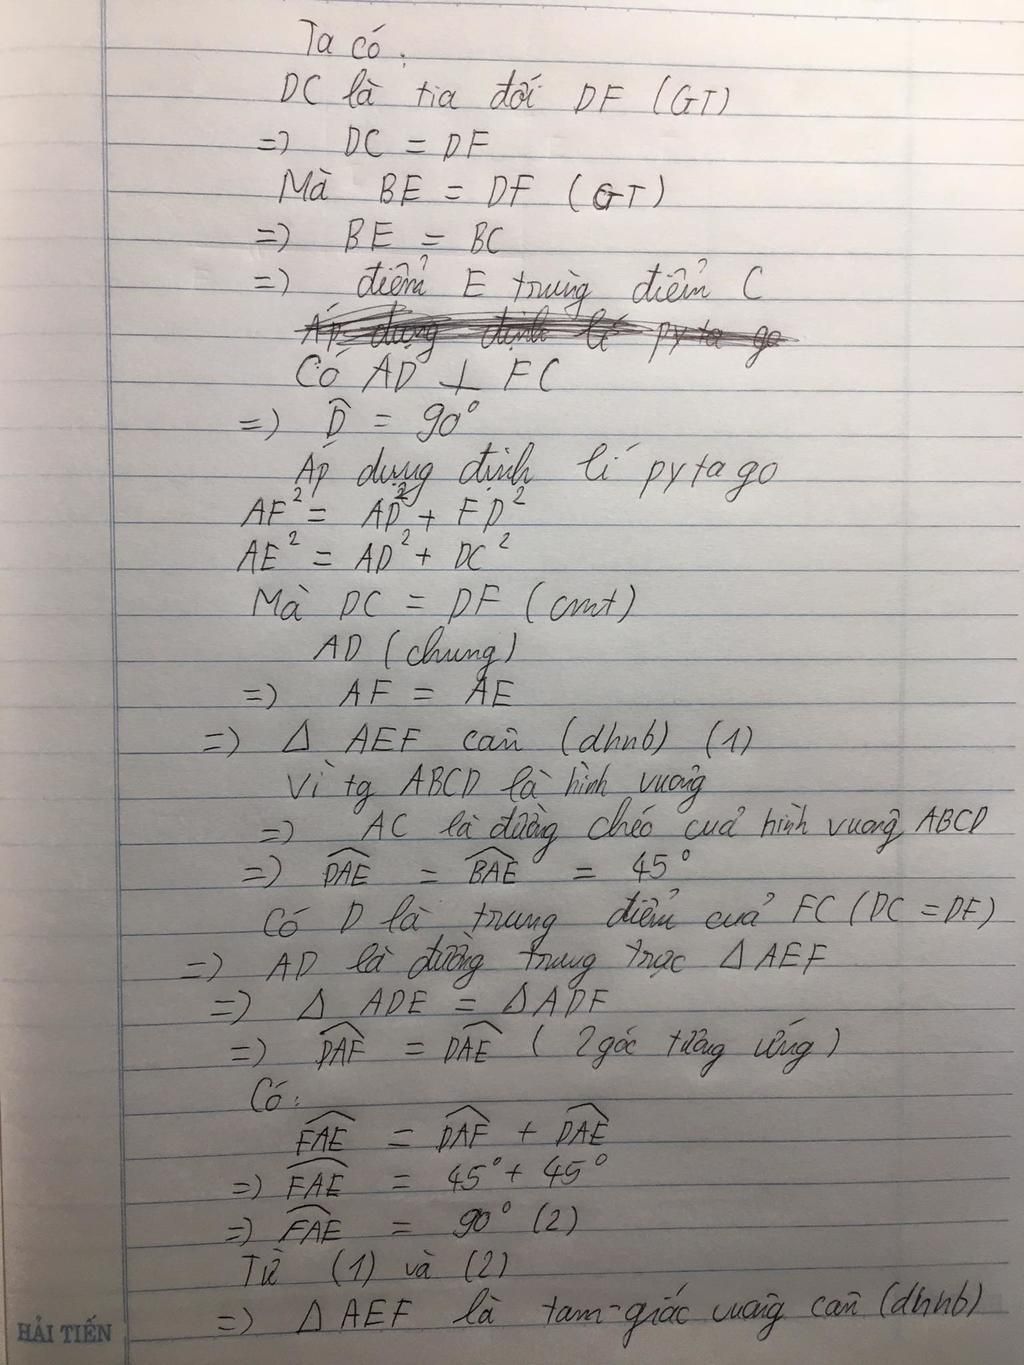 Ta có:
DC là tia đối DF (GT)
=) DC = DF
Mà BE = DF (GT)
=) BE = BC
=) điểm E trùng điểm C
Áp dụng định lí pytago
Có AD ⊥ FC
=) D̂ = 90°
Áp dụng định lí pytago
AF² = AD² + FD²
AE² = AD² + DC²
Mà DC = DF (cmt)
AD (chung)
=) AF = AE
=) Δ AEF cân (dhnb) (1)
Vì tg ABCD là hình vuông
=) AC là đường chéo của hình vuông ABCD
=) \widehat{DAE} = \widehat{BAE} = 45°
Có D là trung điểm của FC (DC = DF)
=) AD là đường trung trực Δ AEF
=) Δ ADE = Δ ADF
=) \widehat{DAF} = \widehat{DAE} ( 2 góc tương ứng )
Có:
\widehat{FAE} = \widehat{DAF} + \widehat{DAE}
=) \widehat{FAE} = 45° + 45°
=) \widehat{FAE} = 90° (2)
Từ (1) và (2)
=) Δ AEF là tam giác vuông cân (dhnb)
HẢI TIẾN